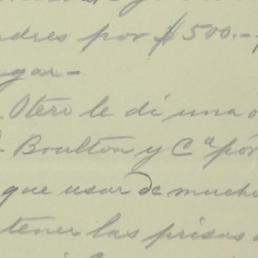 ndres por $500.-
gar-
Otero le di una o
Boulton y Cª por
que usar de mucho
tener las prisas